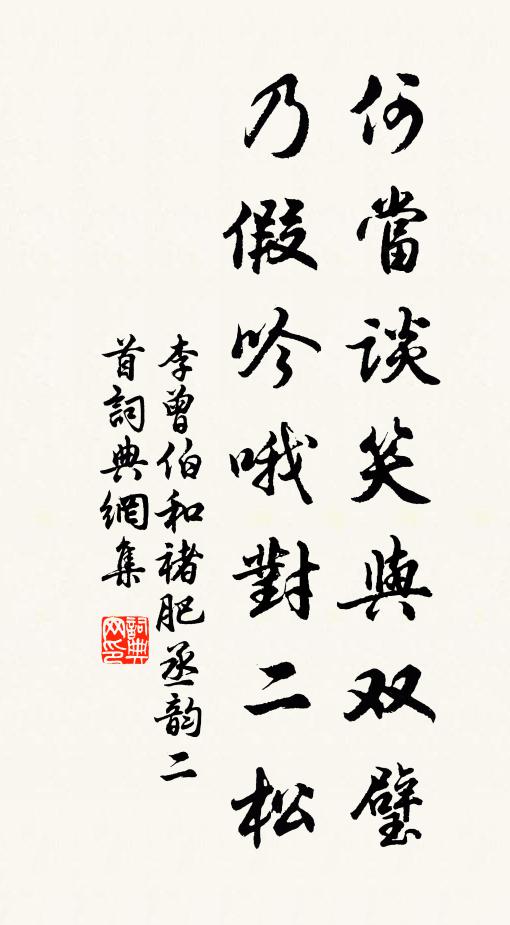 何當談笑與双璧
乃假吟哦對二松
李曾伯和褚肥丞韵二
首詞典網集
詞典
网印